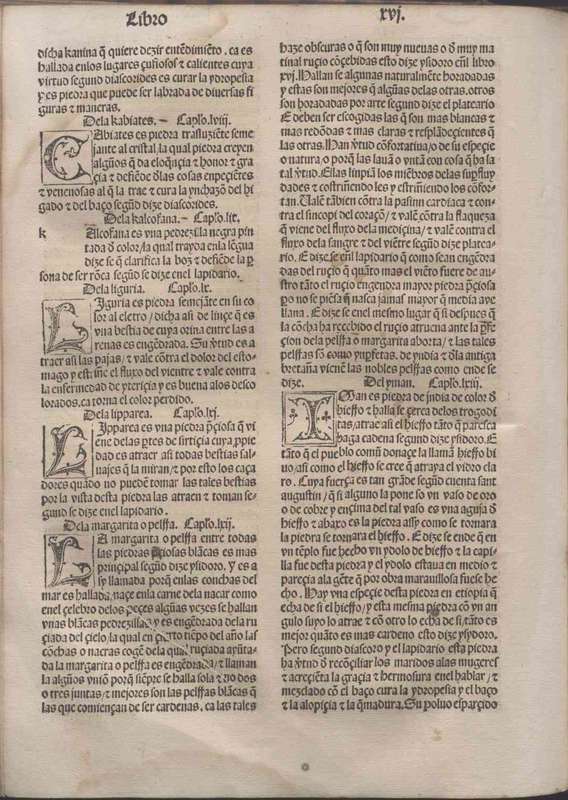 Libro
xvj.
dicha kanina q̄ quiere dezir entēdimiēto. ca es
hallada enlos lugares çufiosos ⁊ calientes cuya
virtud segund diascorides es curar la ydropesia
⁊ es piedra que puede ser labrada de diversas fi
guras ⁊ maneras.
Dela kabiates. ~ Capło.lviij.
CAbiates es piedra trasluziēte seme
jante al cristal, la qual piedra creyen
algūos q̄ da eloquēçia ⁊ honor ⁊ gra
çia ⁊ defiēde d̄las cosas enpeçiētes
⁊ venenosas al q̄ la trae ⁊ cura la ynchazō del hi
gado ⁊ del baço segund dize diascorides.
Dela kalcofana. ~ Capło.lix.
k Alcofana es vna pedrezīlla negra pin
tada d̄ color / la qual trayda enla lēgua
dize se q̄ clarifica la boz ⁊ defiēde la p̄
sona de ser rōca segūd se dize enel lapidario.
Dela liguria. Capło.lx.
LIguria es piedra semejāte en su co
lor al eletro / dicha asi de linçe q̄ es
vna bestia de cuya orina entre las a
renas es engēdrada. Su v̄tud es a
traer asi las pajas / ⁊ vale cōtra el dolor del esto-
mago y estriñe el fluxo del vientre ⁊ vale contra
la enfermedad de ytericia y es buena alos desco
lorados. ca torna el color perdido.
Dela lipparea. Capło.lxj.
LIpparea es vna piedra p̄çiosa q̄ vi
ene delas p̄tes de sirtiçia cuya p̄pie
dad es atraer asi todas bestias sal-
uajes q̄ la miran / ⁊ por esto los caça
dores quādo no puedē tomar las tales bestias
por la vista desta piedra las atraen ⁊ toman se-
gund se dize enel lapidario.
Dela margarita o pelffa. Capło.lxij.
LA margarita o pelffa entre todas
las piedras p̄çiosas blācas es mas
prinçipal segūd dize ysidoro. Y es a
sy llamada porq̄ enlas conchas del
mar es hallada, naçe enla carne dela nacar como
enel çelebro delos peçes algūas vezes se hallan
vnas blācas pedrezillas ⁊ es engēdrada dela ru
çiada del çielo, la qual en çierto tiēpo del año las
cōchas o nacras cogē dela qual ruçiada ayūta-
da la margarita o pelffa es engēdrada / ⁊ llaman
la algūos vniō porq̄ siēpre se halla sola ⁊ no dos
o tres juntas / ⁊ mejores son las pelffas blācas q̄
las que comiençan de ser cardenas. ca las tales
haze obscuras o q̄ son muy nueuas o d̄ muy ma
tinal ruçio cōçebidas esto dize ysidoro enl libro
xvj. Hallan se algunas naturalmēte horadadas
y estas son mejores q̄ algūas delas otras. otros
son horadadas por arte segund dize el plateario
E deben ser escogidas las q̄ son mas blancas ⁊
mas redōdas ⁊ mas claras ⁊ resplādeçientes q̄
las otras. Han v̄tud cōfortatiua / o de su espeçie
o natura, o porq̄ las lauā o vntā con cosa q̄ ha ta
tal v̄tud. Ellas linpiā los miēbros delas sup̄fluy
dades ⁊ costriñendo les y estriñiendo los cōfor-
tan. Valē tābien cōtra la pasiun cardiaca ⁊ con-
tra el sincopi del coraçō / ⁊ valē cōtra la flaqueza
q̄ viene del fluxo dela medicina / ⁊ valē contra el
fluxo dela sangre ⁊ del viētre segūd dize platea-
rio. E dize se enl lapidario q̄ como sean engēdra
das del ruçio q̄ quāto mas el viēto fuere de au-
stro tāto el ruçio engendra mayor piedra p̄çiosa
p̄o no se piēsa q̄ nasca jamas mayor q̄ media ave
llana. E dize se enel mesmo lugar q̄ si despues q̄
la cōcha ha recebido el ruçio atruena ante la p̄fe
çion dela pelffa o margarita aborta / ⁊ las tales
pelffas sō como ynpfetas. de yndia ⁊ d̄la antigua
bretaña vienē las nobles pelffas como ende se
dize. Del yman. Capło.lxiij.
IMan es piedra de jndia de color d̄
hierro ⁊ halla se çerca delos trogodi
tas, atrae asi el hierro tāto q̄ paresca
haga cadena segund dize ysidoro. E
tāto q̄ el pueblo comū donaçe la llamā hierro bi
uo / asi como el hierro se cree q̄ atrayа el vidro cla
ro. Cuya fuerça es tan grāde segūd cuenta sant
augustin / q̄ si alguno la pone so vn vaso de oro
o de cobre y ençima del tal vaso es vna aguja d̄
hierro ⁊ abaxo es la piedra assy como se tornara
la piedra se tornara el hierro. E dize se ende q̄ en
vn tēplo fue hecho vn ydolo de hierro ⁊ la capi-
lla fue desta piedra y el ydolo estaua en medio ⁊
pareçia ala gēte q̄ por obra marauillosa fuese he
cho. Hay vna espeçie desta piedra en etiopia q̄
echa de si el hierro / y esta mesma piedra cō vn an
gulo suyo lo atrae ⁊ cō otro lo echa de si, tāto es
mejor quāto es mas cardeno esto dize ysydoro.
Pero segund diascoro y el lapidario esta piedra
ha v̄tud d̄ recōçiliar los maridos alas mugeres
⁊ acreçiēta la graçia ⁊ hermosura enel hablar / ⁊
mezclado cō el baço cura la ydropesia y el baço
⁊ la alopiçia ⁊ la q̄madura. Su poluo esparçido